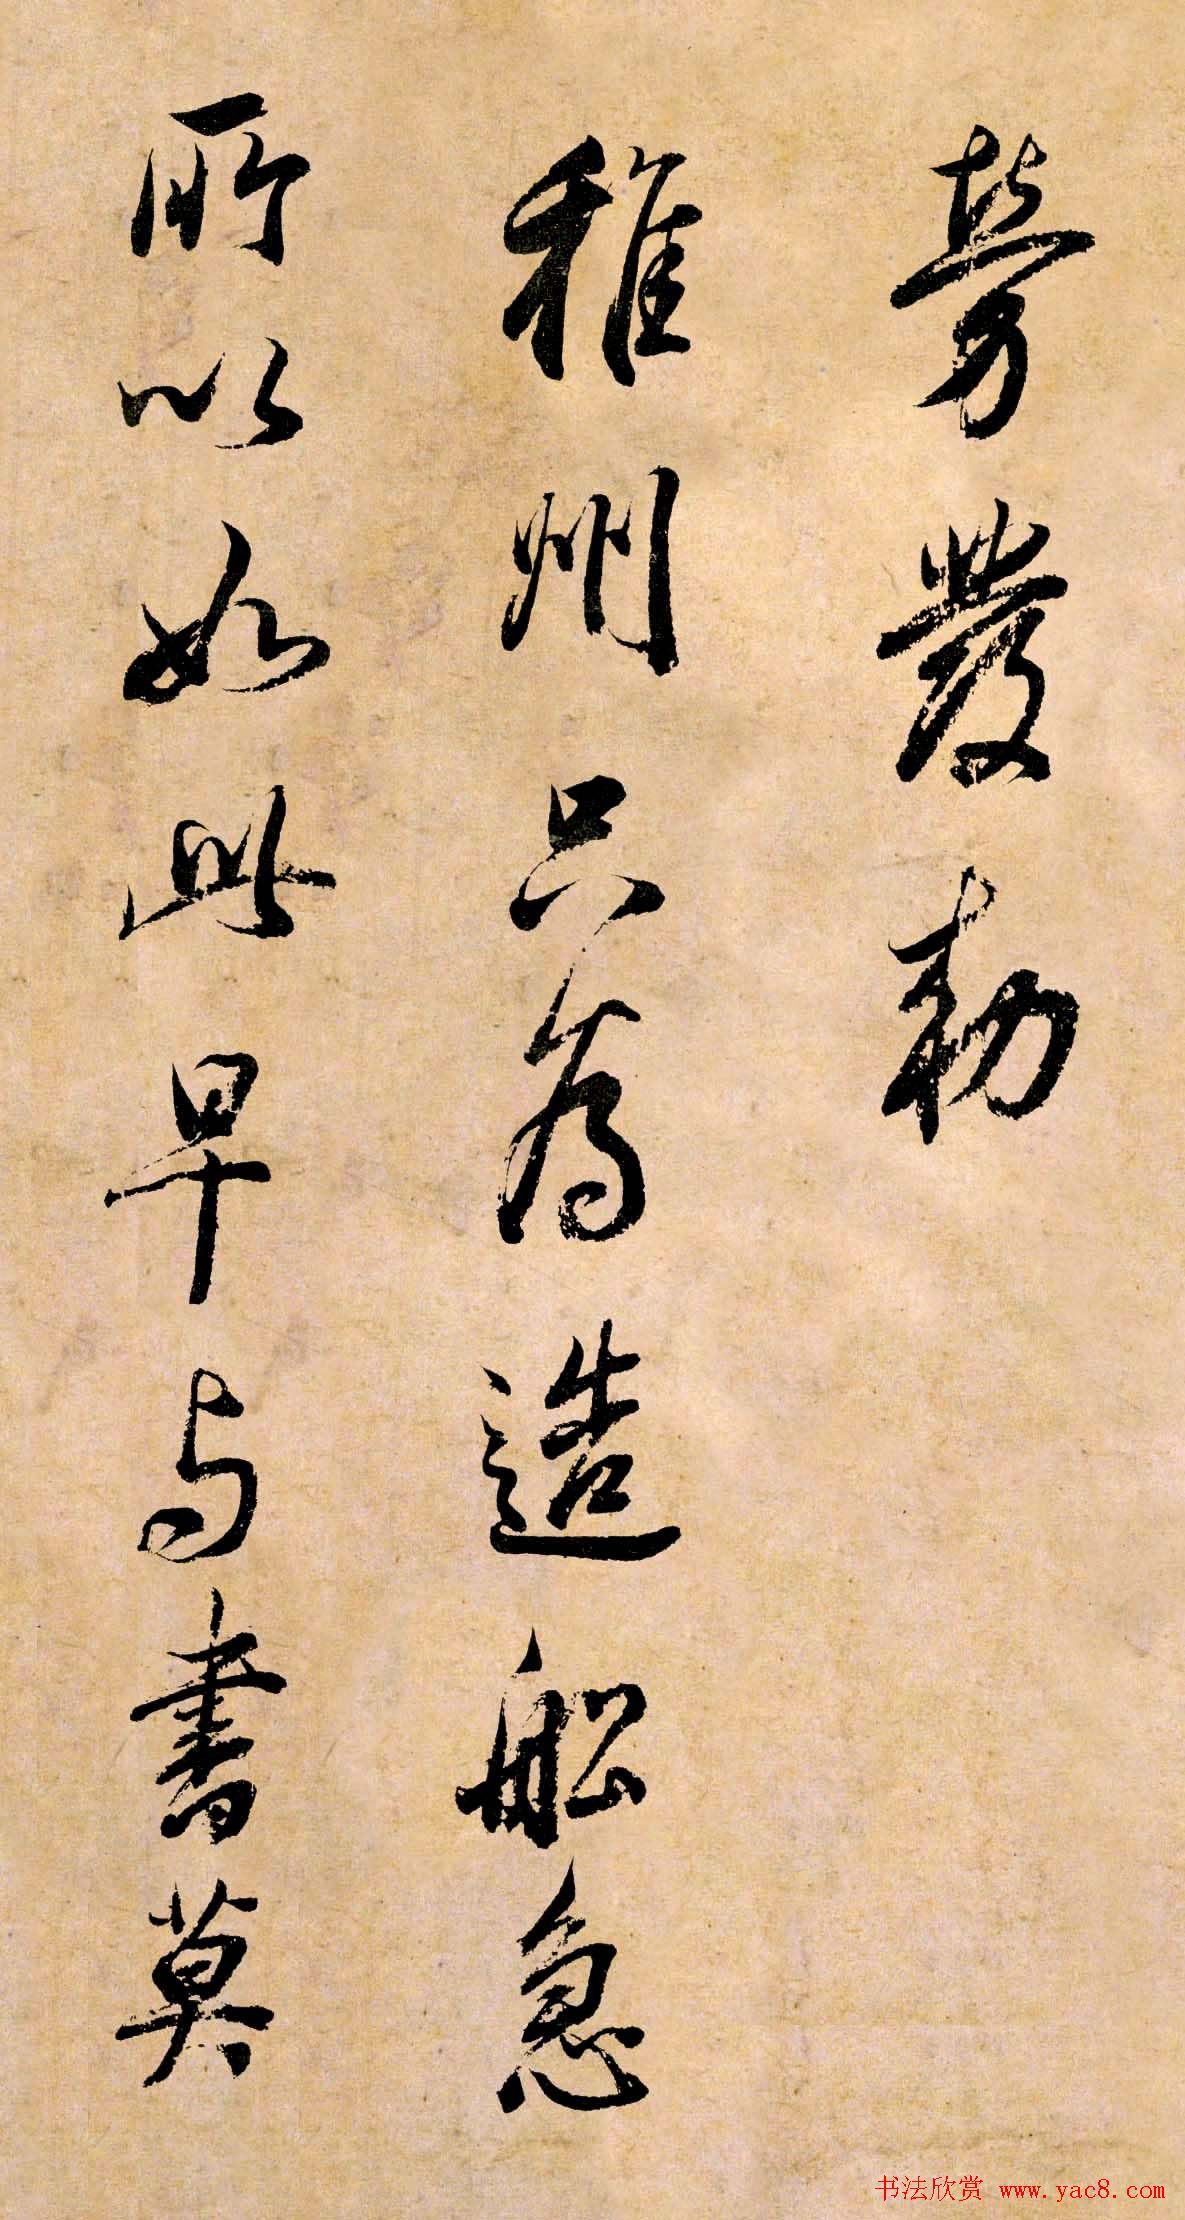 發勅
雅州只為造舩急
所以如此早与書莫
书法欣赏 www.yac8.com